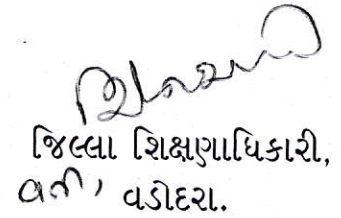 જિલ્લા શિક્ષણાધિકારી,
વતી, વડોદરા.